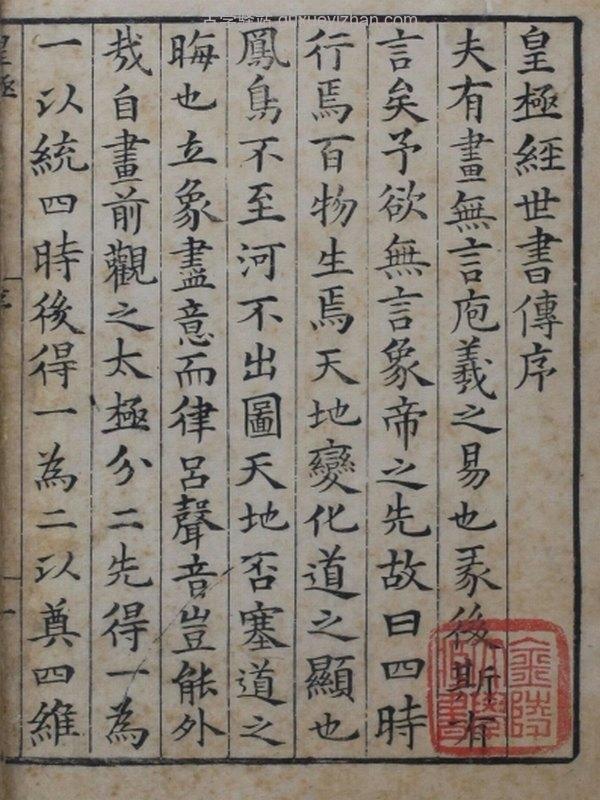 皇極經世書傳序
夫有畫無言庖羲之易也豕後斯有
言矣予欲無言象帝之先故曰四時
行焉百物生焉天地變化道之顯也
鳳鳥不至河不出圖天地否塞道之
晦也立象盡意而律呂聲音豈能外
㦲自畫前觀之太極分二先得一為
一以統四時後得一為二以奠四維
皇極
序
一
古学驿站 guxueyizhan.com